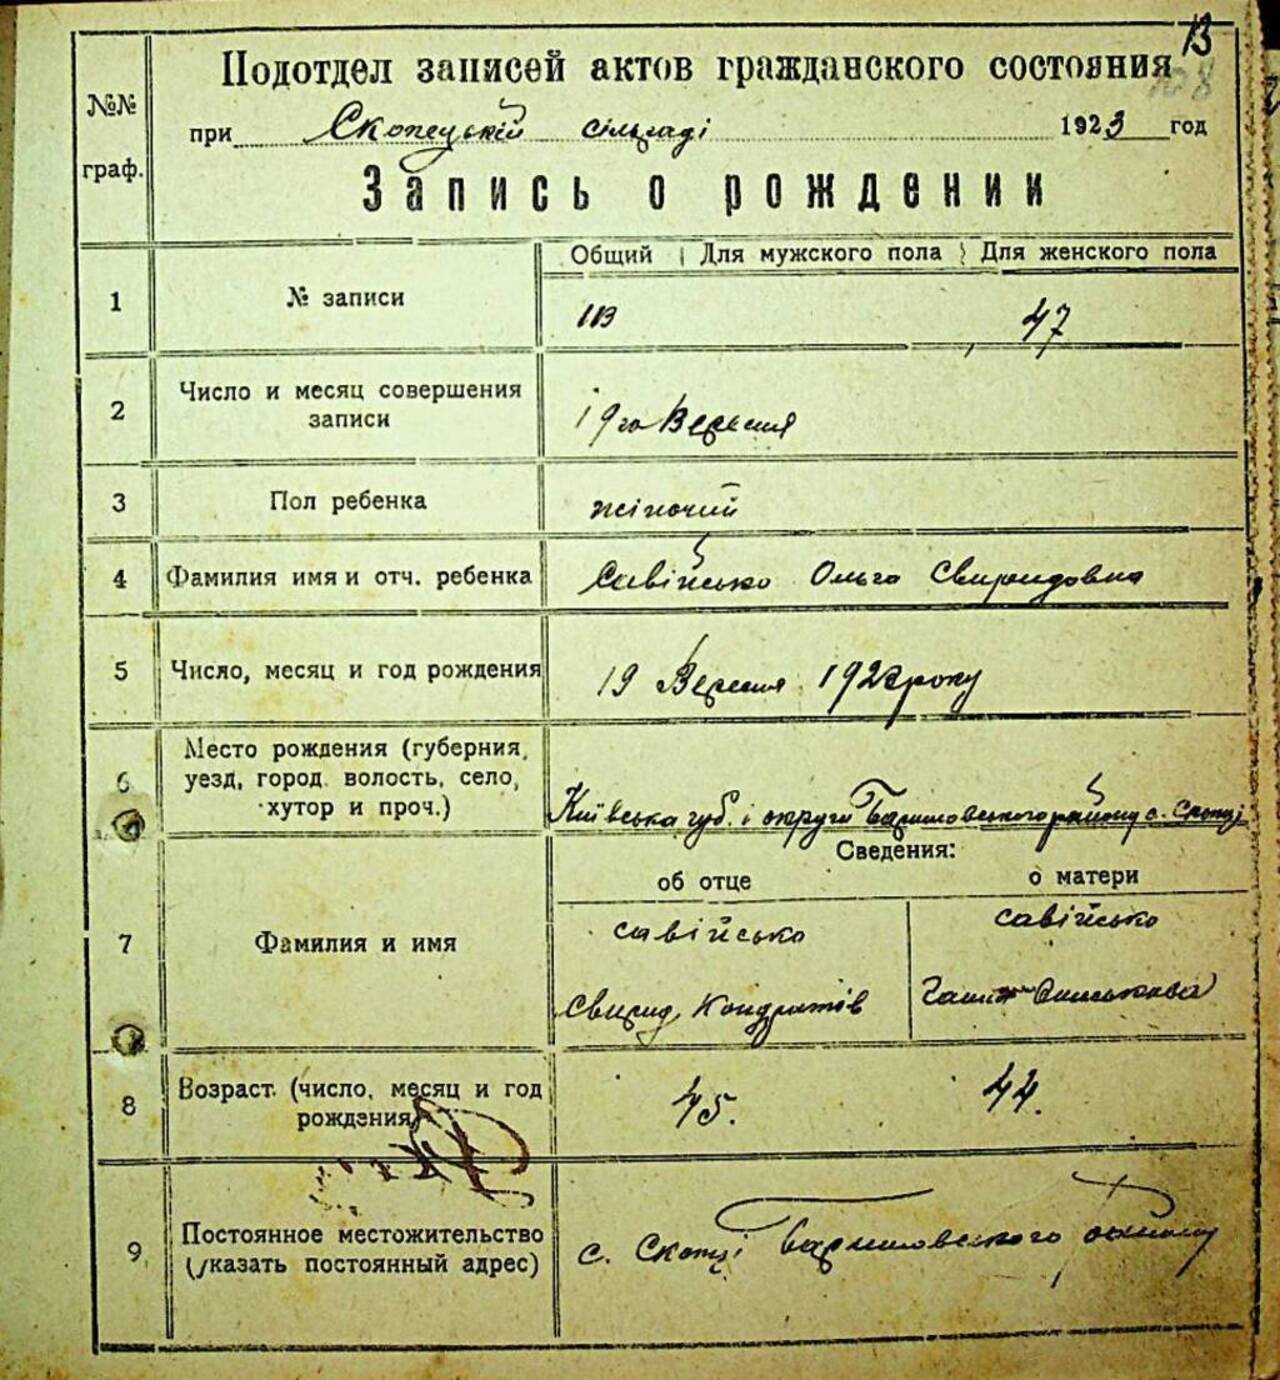 13
Подотдел записей актов гражданского состояния
№№
граф.
при Скопецькій сільраді 1923 год
Запись о рождении
Общий Для мужского пола Для женского пола
1 № записи 113 47
2 Число и месяц совершения
записи 19го Вересня
3 Пол ребенка жіночий
4 Фамилия имя и отч. ребенка Савійсько Ольга Свиридовна
5 Число, месяц и год рождения 19 Вересня року
6 Место рождения (губерния,
уезд, город. волость, село,
хутор и проч.)
Київська губ. і округи Баришовського району с. Скопці
Сведения:
об отце о матери
7 Фамилия и имя
савійсько савійсько
Свирид Кондратів
8 Возраст. (число, месяц и год
рождения) 45. 44.
9 Постоянное местожительство
(указать постоянный адрес)
с. Скопці Баришовського району